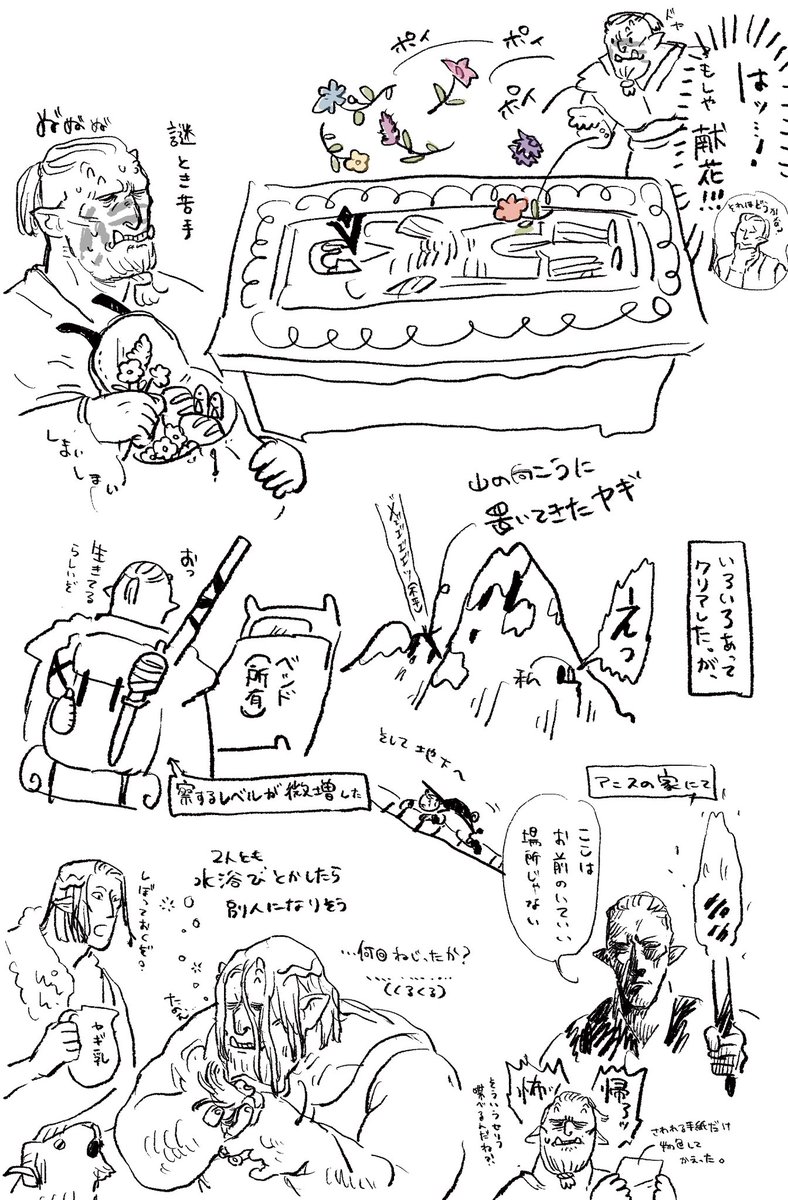 ポイ
ポイ
ポイ
ドヤ
はッ…!
もしや
献花!!!
それはどうかな?
ぬ゛ぬ゛ぬ゛
謎とき苦手
しまい
しまい
山の向こうに
置いてきたヤギ
いろいろあって
クリアしたが、
えっ
私
おっ
生きてる
らしいぞ
ベッド
(所有)
察するレベルが微増した
そして地下へ
アニスの家にて
ここは
お前のいていい
場所じゃない
2人とも
水浴びとかしたら
別人になりそう
しぼっておくぞ?
ヤギ乳
…何回ねじったか?
(くるくる)
怖ッ
帰ろッ
そういうセリフ
喋べるんだね?!
さわれる手紙だけ
物色して
かえった。